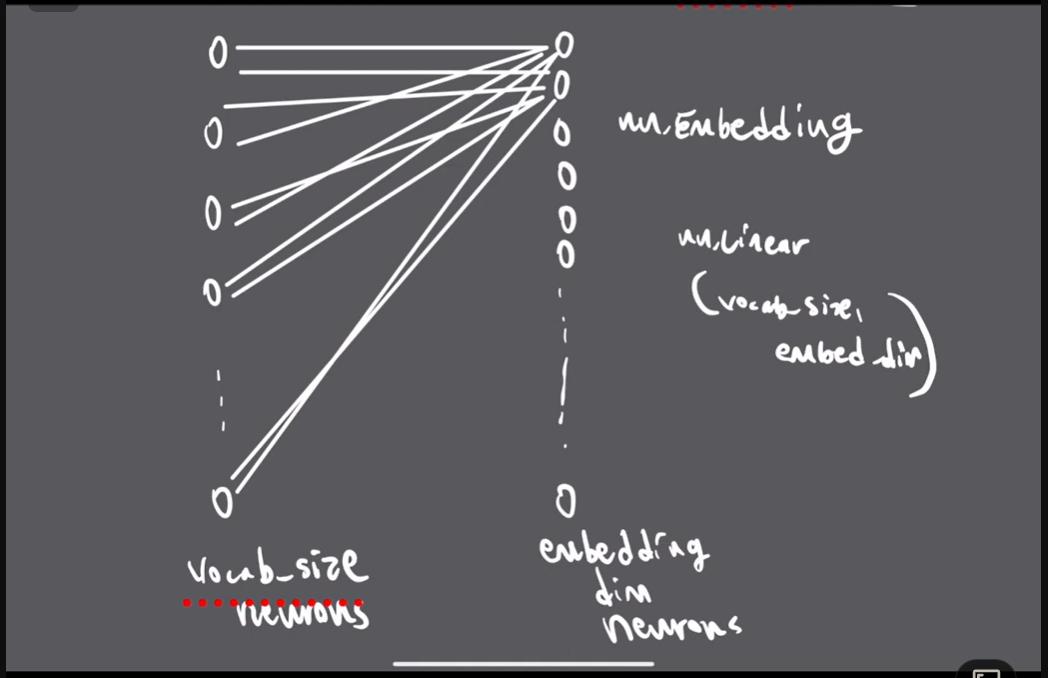 nn.Embedding
nn.Linear
(vocab_size,
embed dim)
vocab_size
neurons
embedding
dim
neurons